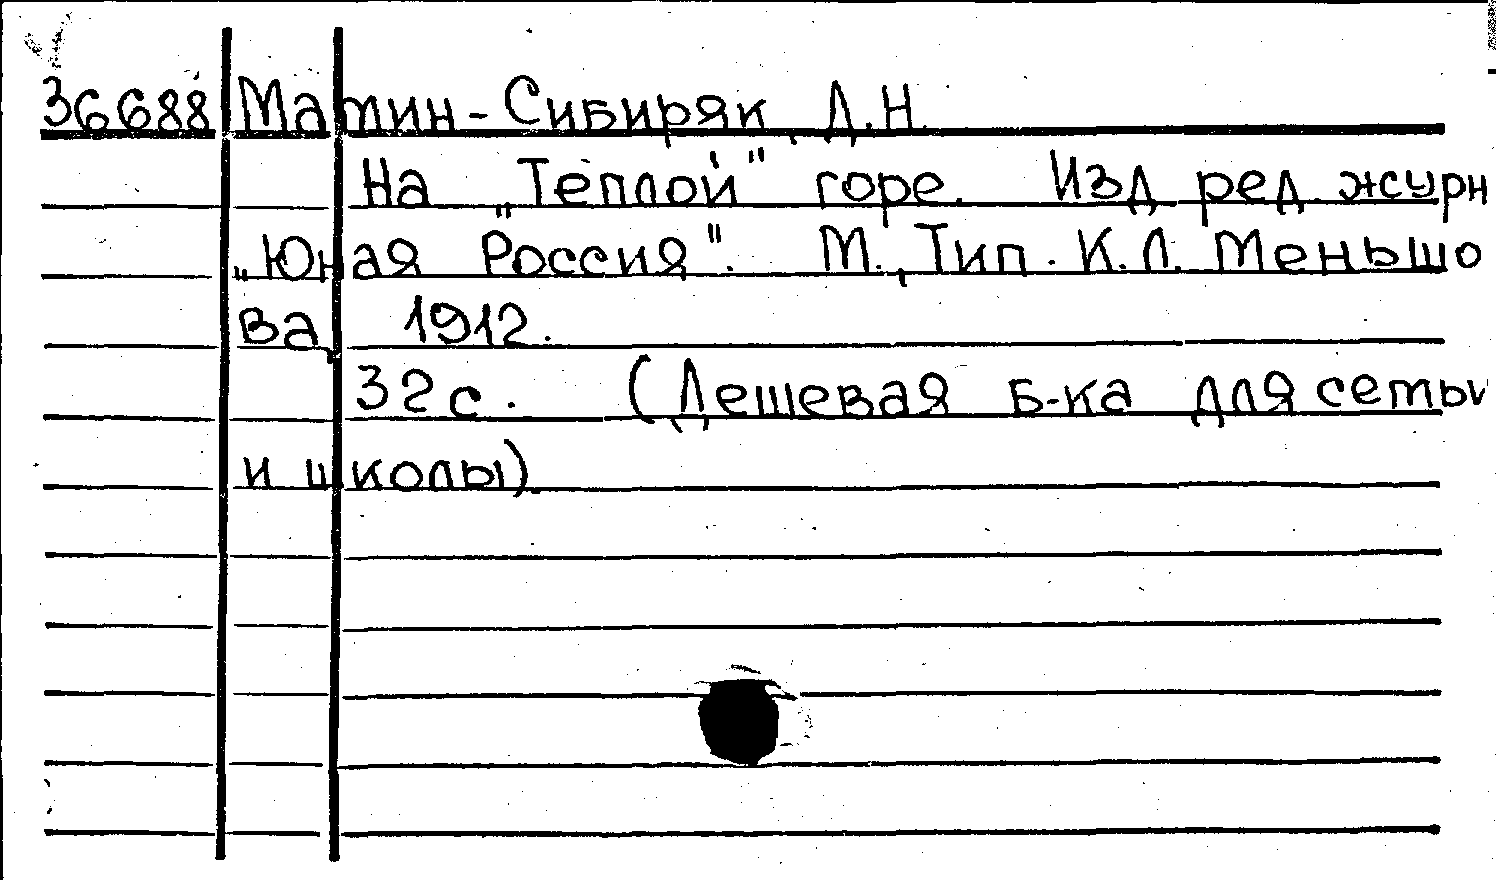 36688 Мамин-Сибиряк, Д.Н.
На „Теплой" горе. Изд. ред. журн
„Юная Россия". М., Тип. К.Л. Меньшо
ва, 1912.
32 с. (Дешевая б-ка для семьи
и школы)